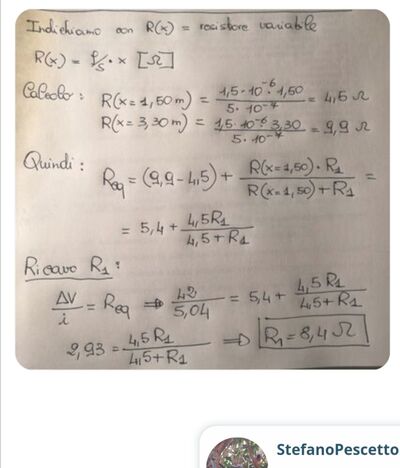 Indichiamo con R(x) = resistore variabile
R(x) = ρ/s · x [Ω]
Calcolo: R(x=1,50m) = 1,5·10⁻⁶·1,50 / 5·10⁻⁷ = 4,5 Ω
R(x=3,30m) = 1,5·10⁻⁶·3,30 / 5·10⁻⁷ = 9,9 Ω
Quindi: Req = (9,9-4,5) + R(x=1,50)·R1 / R(x=1,50)+R1 =
= 5,4 + 4,5R1 / 4,5+R1
Ricavo R1:
ΔV/i = Req ⇒ 42/5,04 = 5,4 + 4,5R1 / 4,5+R1
2,93 = 4,5R1 / 4,5+R1 ⇒ R1 = 8,4 Ω
StefanoPescetto